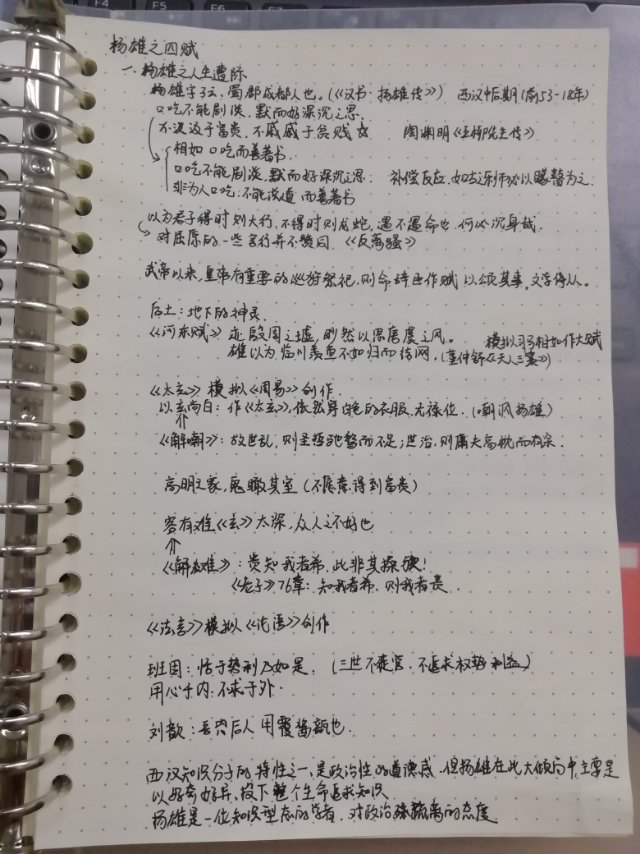 F4 F5 F6
杨雄之四赋
一、杨雄之人生遭际
杨雄字子云，蜀郡成都人也。(《汉书·扬雄传》) 西汉中后期(前53-18年)
口吃不能剧谈，默而好深沉之思，
不汲汲于富贵，不戚戚于贫贱☆ 陶渊明《五柳先生传》
相如口吃而善著书.
口吃不能剧谈，默而好深沉之思. 补偿反应，如去
非为人口吃，不能说道而善著书
以为君子得时则大行，不得时则龙蛇，遇不遇命也，何必沉身哉.
对屈原的一些言行并不赞同，《反离骚》
武帝以来，皇帝有重要的巡狩祭祀，则命辞臣作赋以颂其事，文学侍从.
后土：地下的神灵.
《河东赋》迹殷周之墟，眇然以思唐虞之风. 模拟司马相如作大赋
雄以为临川羡鱼不如归而结网，(董仲舒《天人三策》)
《太玄》模拟《周易》创作.
以玄尚白：作《太玄》，依然穿白色的衣服，无禄位.(嘲讽杨雄)
《解嘲》：故世乱，则圣哲驰骛而不足；世治，则庸夫高枕而有余.
高明之家，鬼瞰其室(不愿意得到富贵)
客有难《玄》太深，众人之不好也
《解难》：贵知我者希，此非其操欤！
《老子》76章：知我者希，则我者贵.
《法言》模拟《论语》创作
班固：恬于势利乃如是. (三世不徙官，不追求权势利益)
用心于内，不求于外.
刘歆：吾恐后人用覆酱瓿也.
西汉知识分子的特性之一，是政治性的道德感，但扬雄在此大倾向中，主要是
以好奇好异，投下整个生命追求知识
杨雄是一位知识型态的学者，对政治疏离的态度